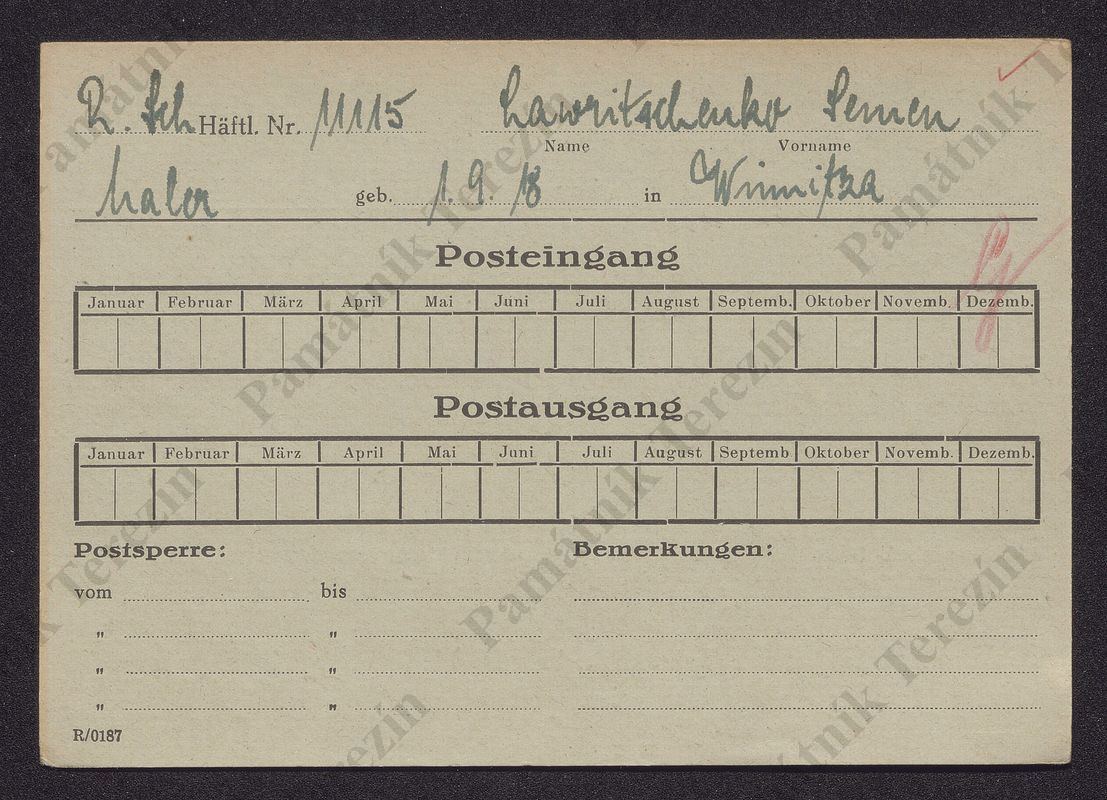 R. Sch Häftl. Nr. 11115 Lawritschenko Semen
Name Vorname
Maler geb. 1. 9. 18 in Winnitza
Posteingang
Januar Februar März April Mai Juni Juli August Septemb. Oktober Novemb. Dezemb.
Postausgang
Januar Februar März April Mai Juni Juli August Septemb Oktober Novemb. Dezemb.
Postsperre: Bemerkungen:
vom bis
" "
" "
" "
R/0187
Památník Terezín